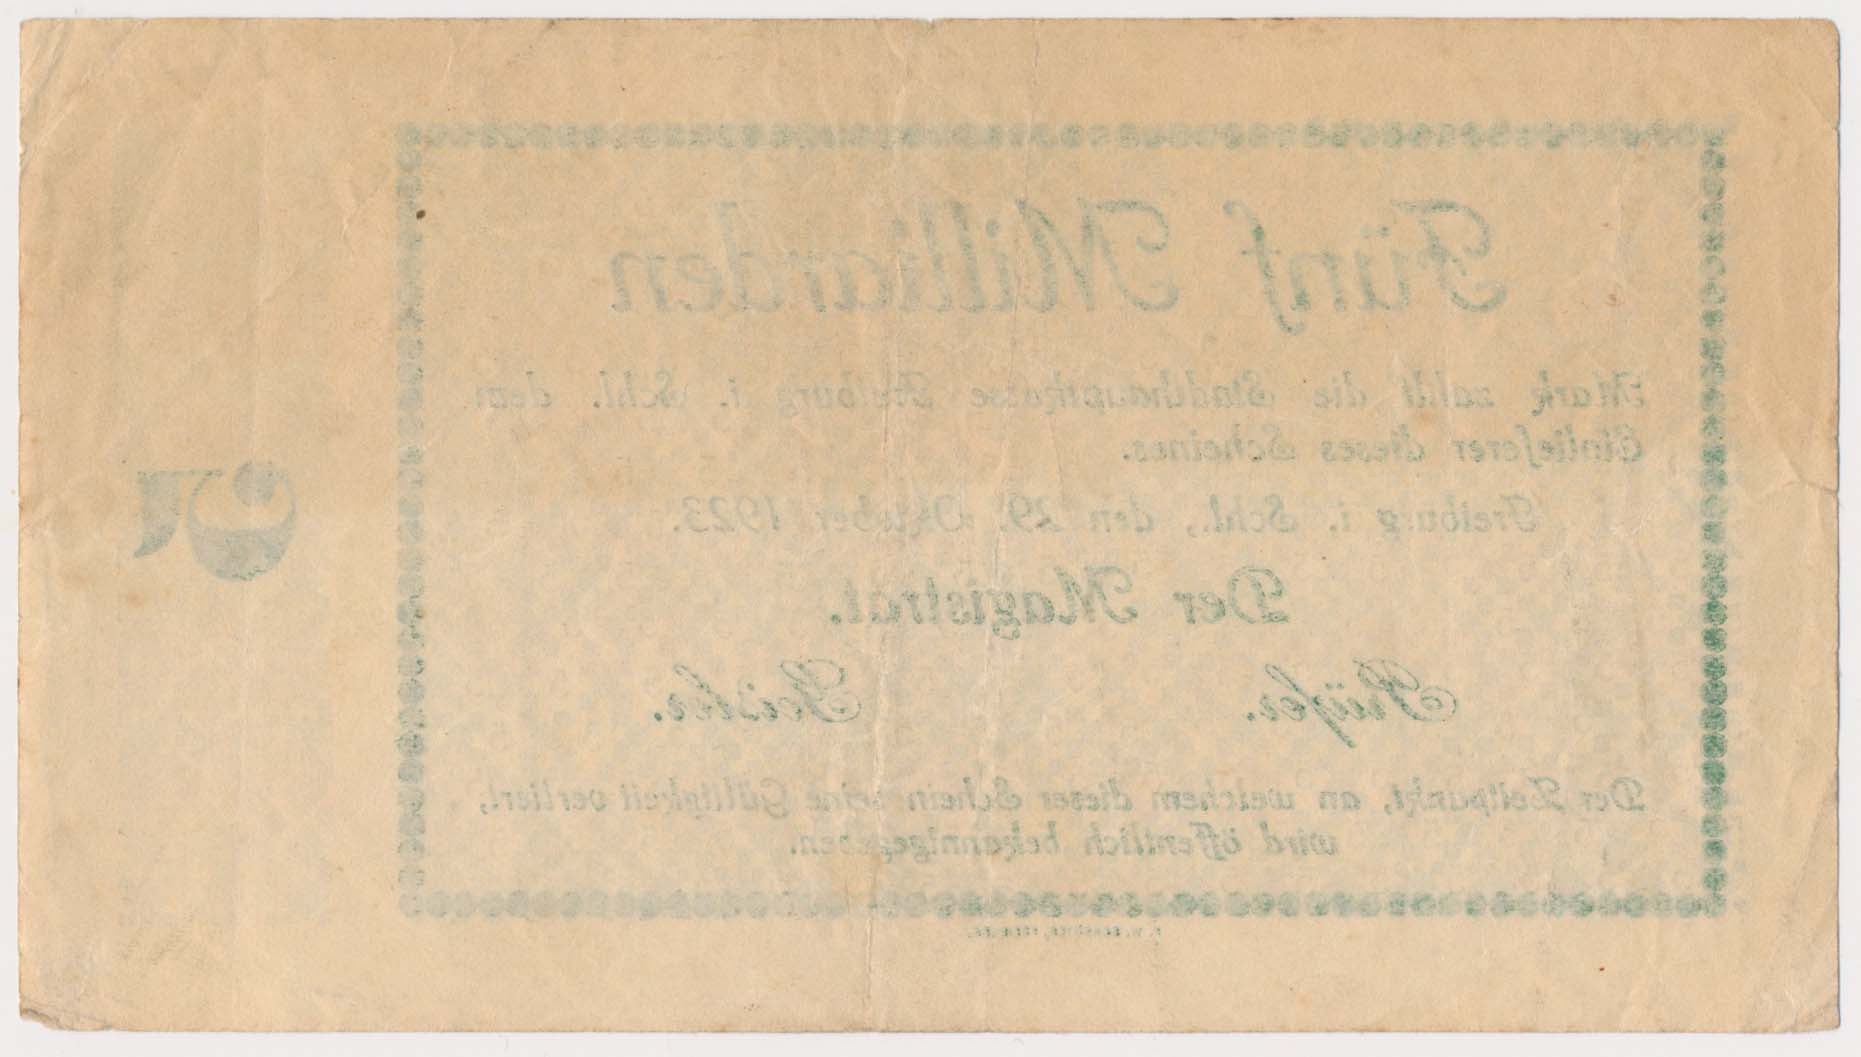 Fünf Milliarden
Mark zahlt die Stadthauptkasse Freiburg i. Schl. dem
Einlieferer dieses Scheines.
Freiburg i. Schl., den 29. Oktober 1923.
Der Magistrat.
Prüfer. Geisler.
Der Zeitpunkt, an welchem dieser Schein seine Gültigkeit verliert,
wird öffentlich bekanntgegeben.
5